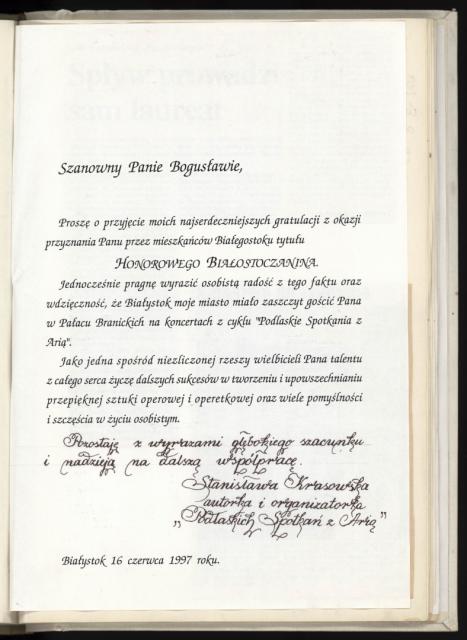 Szanowny Panie Bogusławie,
Proszę o przyjęcie moich najserdeczniejszych gratulacji z okazji
przyznania Panu przez mieszkańców Białegostoku tytułu
HONOROWEGO BIAŁOSTOCZANINA.
Jednocześnie pragnę wyrazić osobistą radość z tego faktu oraz
wdzięczność, że Białystok moje miasto miało zaszczyt gościć Pana
w Pałacu Branickich na koncertach z cyklu "Podlaskie Spotkania z
Arią".
Jako jedna spośród niezliczonej rzeszy wielbicieli Pana talentu
z całego serca życzę dalszych sukcesów w tworzeniu i upowszechnianiu
przepięknej sztuki operowej i operetkowej oraz wiele pomyślności
i szczęścia w życiu osobistym.
Pozostaję z wyrazami głębokiego szacunku
i nadzieją na dalszą współpracę.
Stanisława Krasowska
autorka i organizatorka
„Podlaskich Spotkań z Arią”
Białystok 16 czerwca 1997 roku.